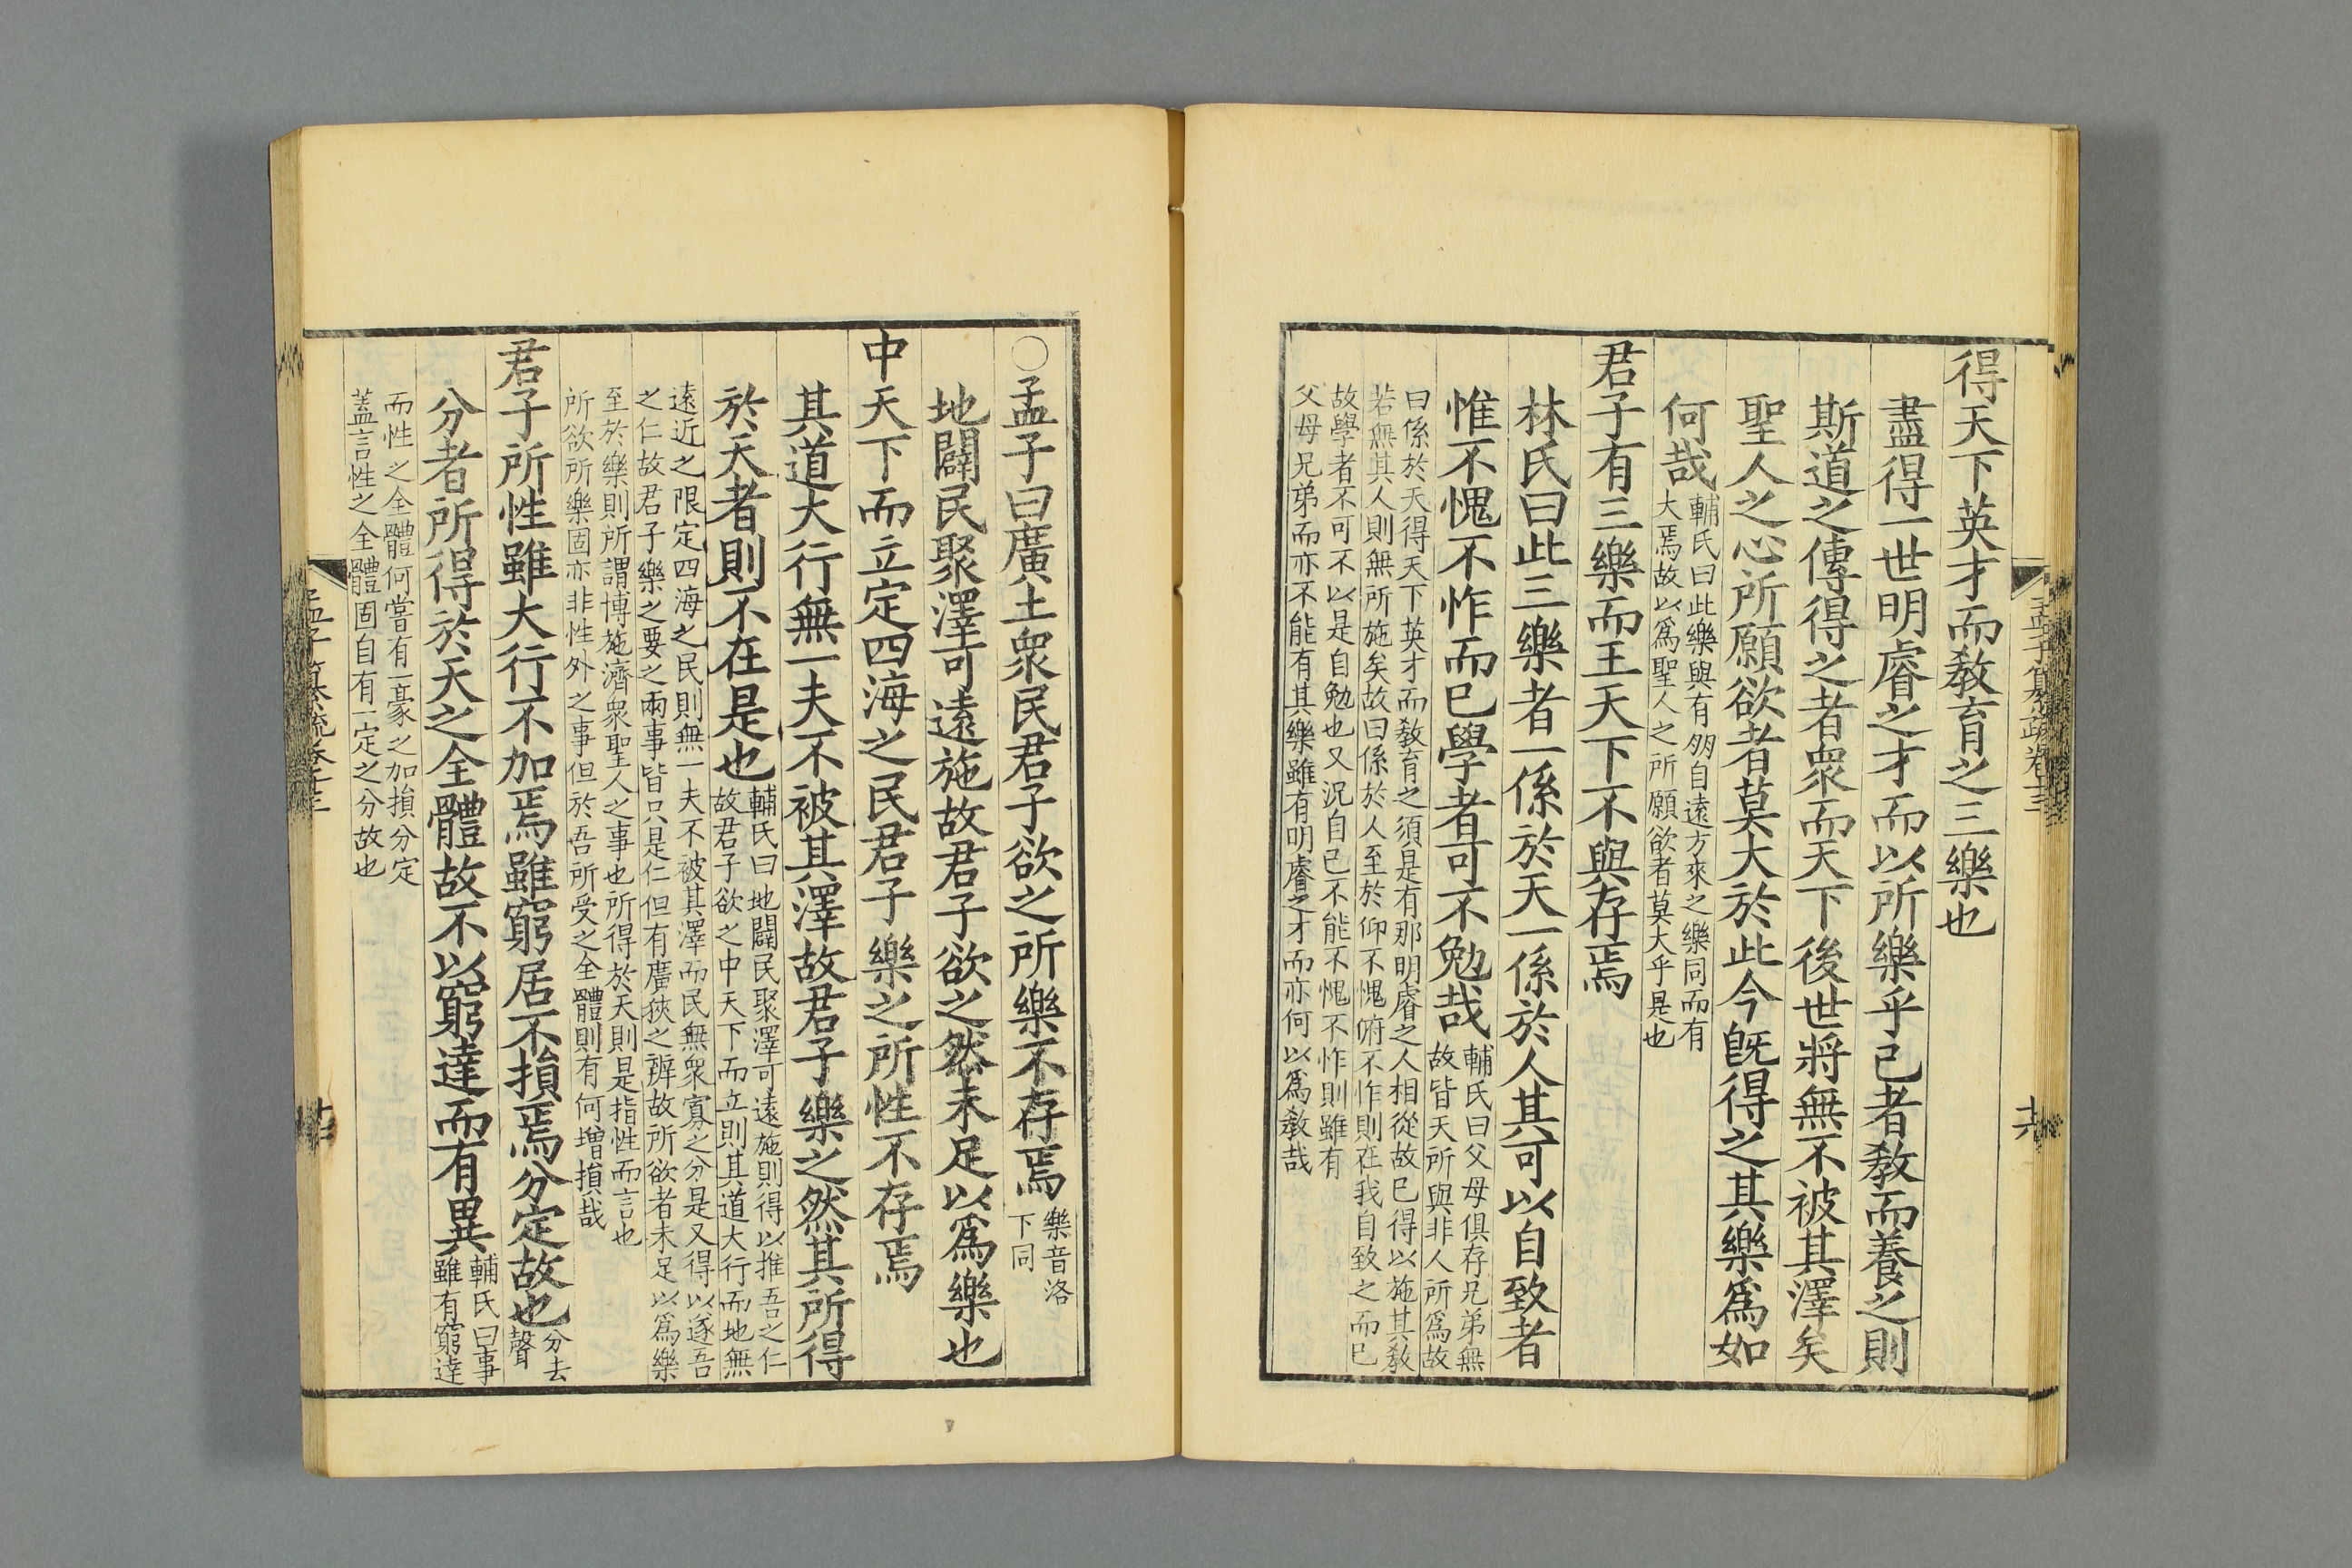 得天下英才而敎育之三樂也
盡得一世明睿之才而以所樂乎己者敎而養之則
斯道之傳得之者衆而天下後世將無不被其澤矣
聖人之心所願欲者莫大於此今旣得之其樂爲如
何哉
輔氏曰此樂與有朋自遠方來之樂同而有
大焉故以爲聖人之所願欲者莫大乎是也
君子有三樂而王天下不與存焉
林氏曰此三樂者一係於天一係於人其可以自致者
惟不愧不怍而已學者可不勉哉
輔氏曰父母俱存兄弟無
故皆天所與非人所爲故
曰係於天得天下英才而敎育之須是有那明睿之人相從故已得以施其敎
若無其人則無所施矣故曰係於人至於仰不愧俯不怍則在我自致之而已
故學者不可不以是自勉也又況自已不能不愧不怍則雖有
父母兄弟而亦不能有其樂雖有明睿之才而亦何以爲敎哉
孟子纂疏卷十三
〇孟子曰廣土衆民君子欲之所樂不存焉
樂音洛
下同
地闢民聚澤可遠施故君子欲之然未足以爲樂也
中天下而立定四海之民君子樂之所性不存焉
其道大行無一夫不被其澤故君子樂之然其所得
於天者則不在是也
輔氏曰地闢民聚澤可遠施則得以推吾之仁
故君子欲之中天下而立則其道大行而地無
遠近之限定四海之民則無一夫不被其澤而民無衆寡之分是又得以遂吾
之仁故君子樂之要之兩事皆只是仁但有廣狹之辨故所欲者未足以爲樂
至於樂則所謂博施濟衆聖人之事也所得於天則是指性而言也
所欲所樂固亦非性外之事但於吾所受之全體則有何增損哉
君子所性雖大行不加焉雖窮居不損焉分定故也
分去
聲
分者所得於天之全體故不以窮達而有異
輔氏曰事
雖有窮達
而性之全體何嘗有一豪之加損分定
蓋言性之全體固自有一定之分故也